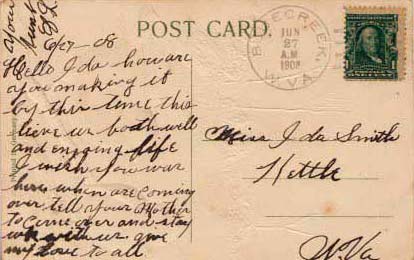 your
Aunt
6/27-08
POST CARD.
JUN
27
A.M.
1908
W.VA.
Hello Ida how are
you making it
by this time this
lieve us both well
and enjoing life
I wish you was
here when are coming
over tell your Mother
to come over and stay
with us give
my love to all
Miss Ida Smith
Kettle
W.Va